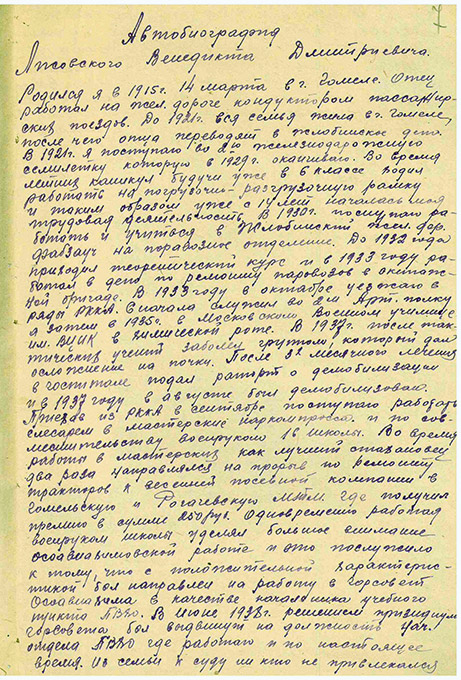 7
Автобиография
Лисовского Венедикта Дмитриевича.
Родился я в 1915г. 14 марта в г. Гомеле. Отец
работал на жел. дороге кондуктором пассажир-
ских поездов. До 1921г. вся семья жила в г. Гомеле,
после чего отца переводят в Жлобинское депо.
В 1921г. я поступаю во 2ю железнодорожную
семилетку которую в 1929г. оканчиваю. Во время
летних каникул будучи уже в 6 классе ходил
работать на погрузочно-разгрузочную рампу
и таким образом уже с 14 лет началась моя
трудовая деятельность. В 1930г. поступаю ра-
ботать и учиться в Жлобинский жел. дор.
фабзауч на паровозное отделение. До 1932 года
проходил теоретический курс и в 1933 году ра-
ботал в депо по ремонту паровозов в
бригаде. В 1933 году в октябре уезжаю в
ряды РККА. Вначале служил во 2м Арт. полку
а затем в 1935г. в Московском Военном училище
им. ВЦИК в химической роте. В 1937г. после так-
тических учений заболел гриппом, который дал
осложнение на почки. После 3х месячного лечения
в госпитале подал рапорт о демобилизации
и в 1937 году в августе был демобилизован.
Приехав из РККА в сентябре поступаю работать
слесарем в мастерские наркомпроса и по сов-
местительству военруком 16 школы. Во время
работы в мастерских как лучший стахановец
два раза направлялся на прорыв по ремонту
тракторов к весенней посевной компании в
Гомельскую и Рогачевскую МТМ где получил
премию в сумме 250 руб. Одновременно работая
военруком школы уделял большое внимание
осоавиахимовской работе и это послужило
к тому, что с положительной характерис-
тикой был направлен на работу в горсовет
Осоавиахима в качестве начальника учебного
пункта ПВХО. В июне 1938г. решением президиума
горсовета был выдвинут на должность нач.
отдела ПВХО где работаю и по настоящее
время. Из семьи к суду ни кто не привлекался